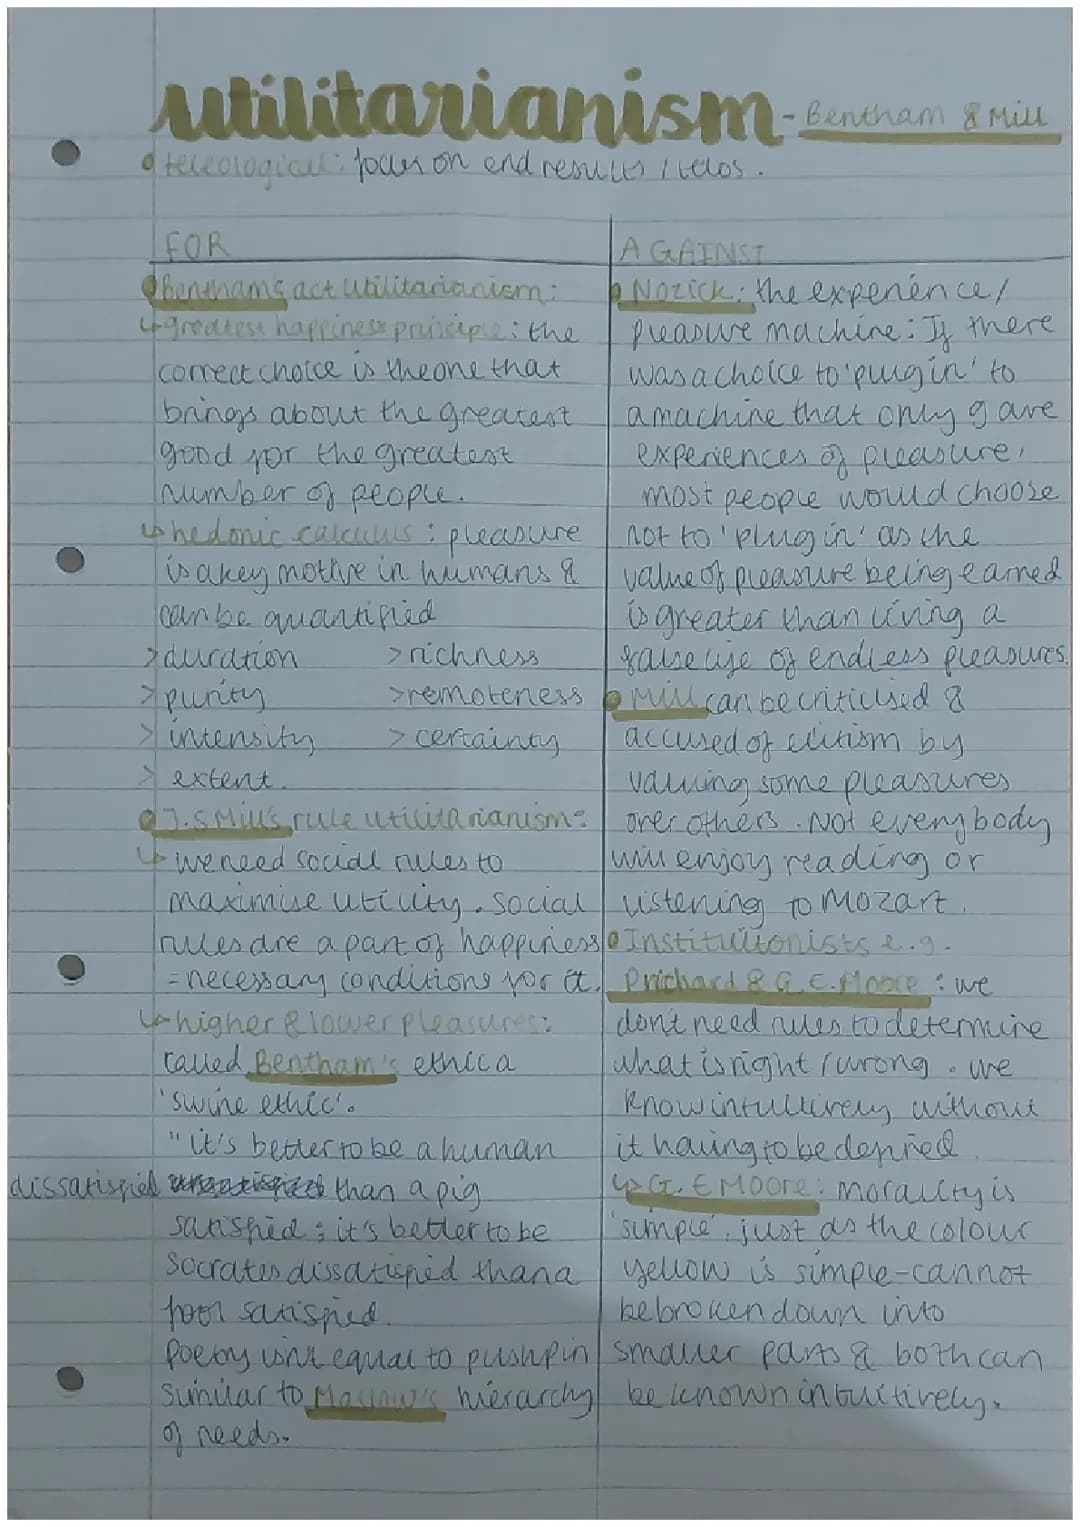 utilitarianism - Bentham & Mill
teleological: focus on end results / telos.
FOR
Bentham's act utilitarianism:
↳ greatest happiness principle: the
correct choice is the one that
brings about the greatest
good for the greatest
number of people.
↳ hedonic calculus: pleasure
is a key motive in humans &
can be quantified
> duration > richness
> purity > remoteness
> intensity > certainty
> extent.
J.S Mill's rule utilitarianism:
↳ we need social rules to
maximise utility. Social
rules are a part of happiness
= necessary conditions for it.
↳ higher & lower pleasures:
called Bentham's ethic a
'swine ethic'.
"it's better to be a human
dissatisfied than a pig
satisfied; it's better to be
Socrates dissatisfied than a
fool satisfied.
Poetry isn't equal to pushpin
similar to Maslow's hierarchy
of needs.
AGAINST
Nozick: the experience/
pleasure machine: If there
was a choice to 'plug in' to
a machine that only gave
experiences of pleasure,
most people would choose
not to 'plug in' as the
value of pleasure being earned
is greater than living a
false life of endless pleasures.
Mill can be criticised &
accused of elitism by
valuing some pleasures
over others. Not everybody
will enjoy reading or
listening to Mozart.
Instituitonists e.g.
Prichard & G.E. Moore: we
don't need rules to determine
what is right / wrong. we
know intuitively without
it having to be defined.
↳ G.E MOORE: morality is
'simple', just as the colour
yellow is simple-cannot
be broken down into
smaller parts & both can
be known intuitively.